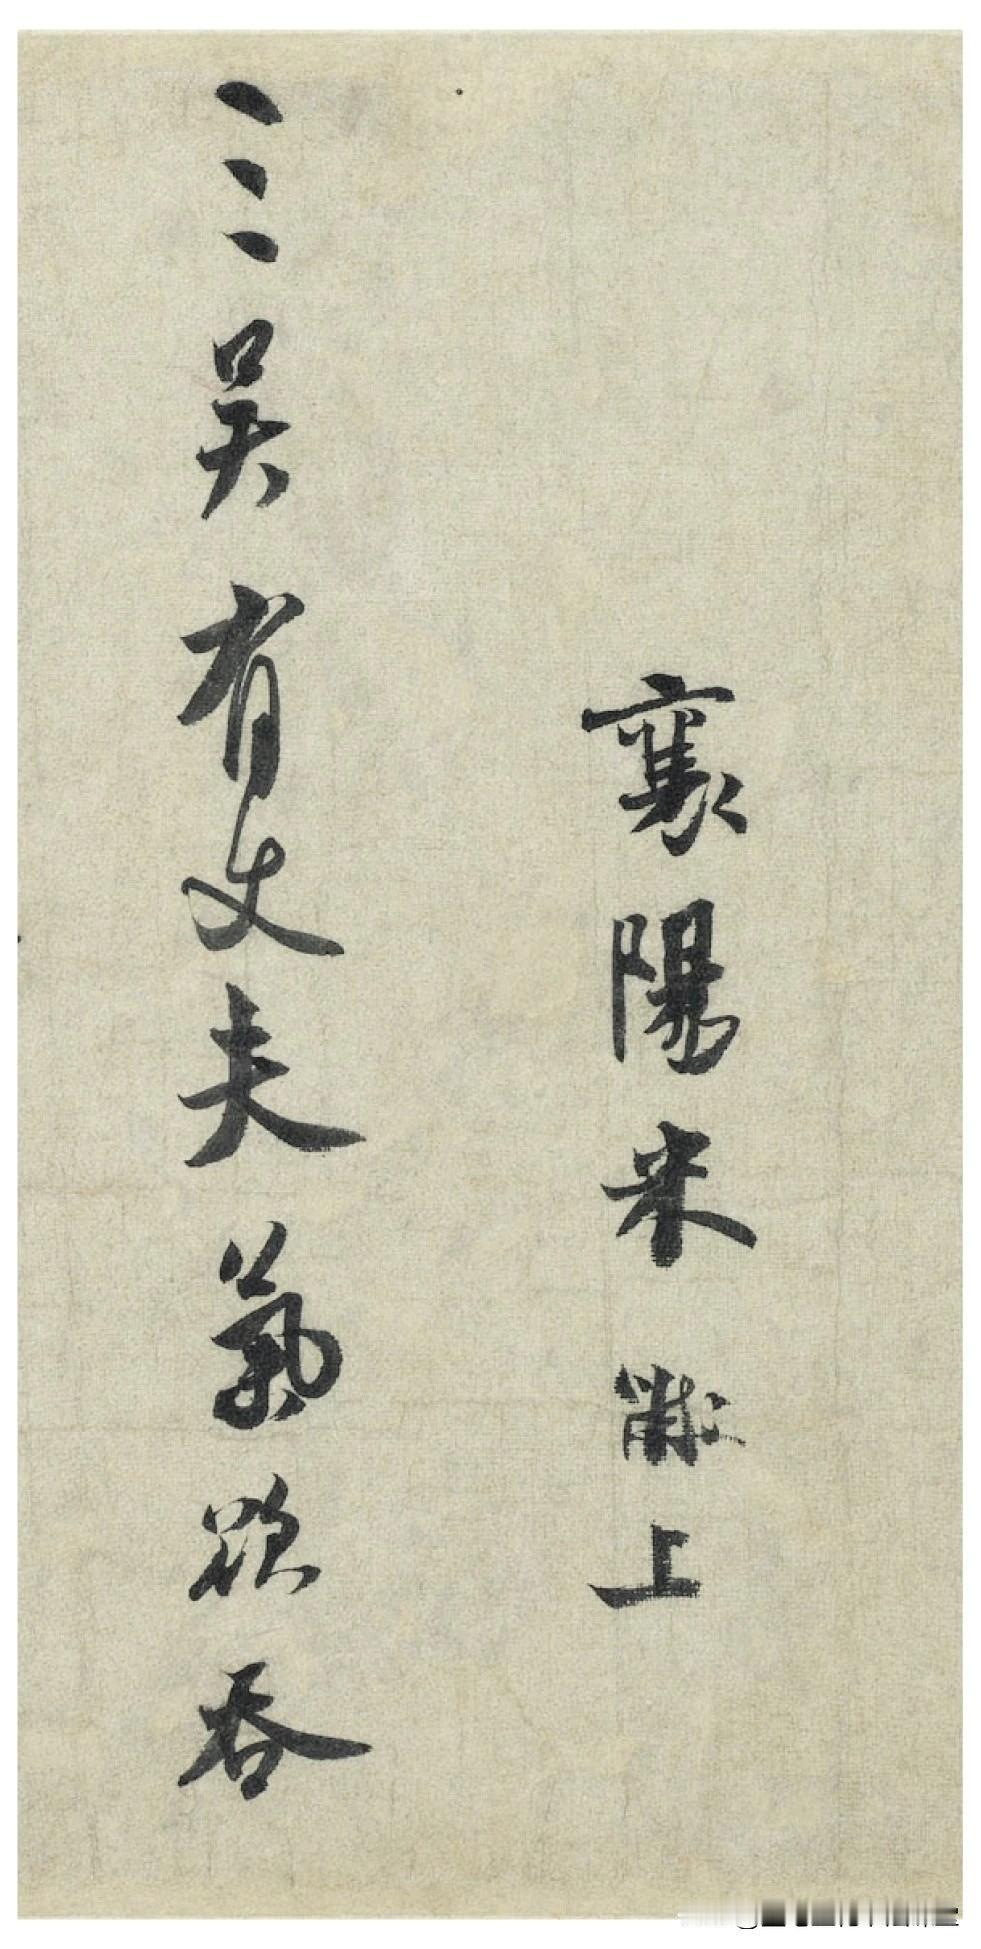 襄陽米黻上
三吳有丈夫氣欲吞